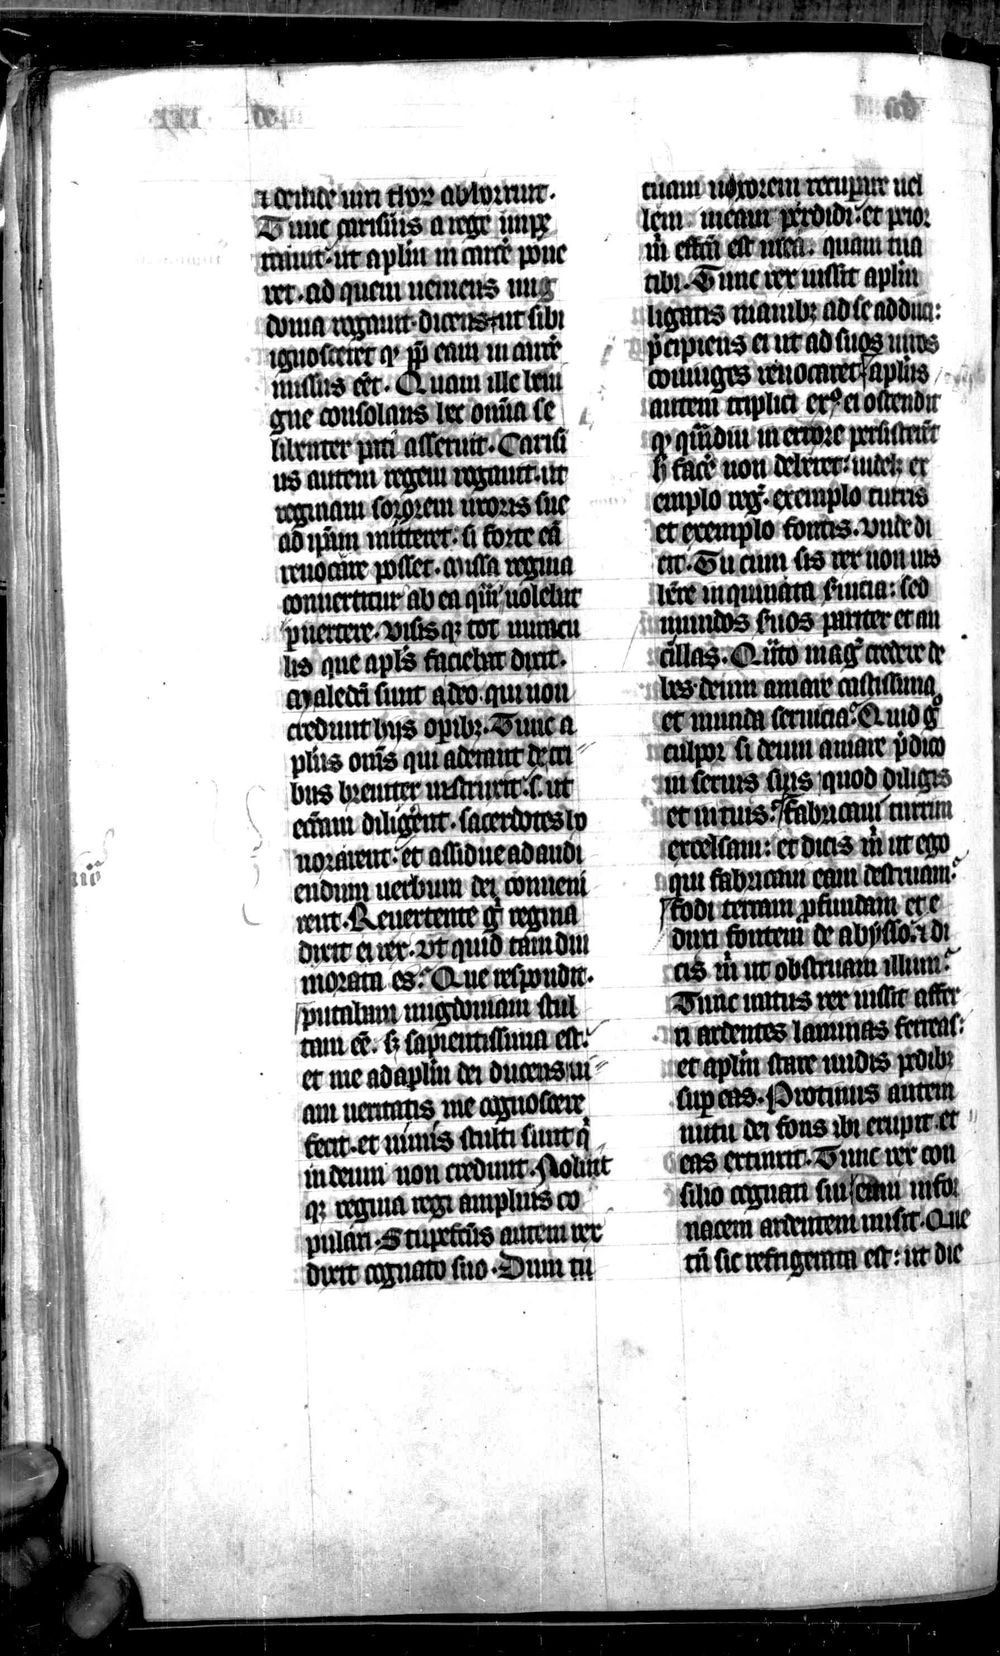 ⁊ deinde uiri tuoꝝ abhorrent.
Tunc carisius a rege impe
trauit. ut aplm̄ in carcē pone
ret. ad quem ueniens mig
donia rogauit. dicens. ut sibi
ignosceret ꝙ ꝓp̄ eam in carcē
missus eēt. Quam ille beni
gne consolans hec omīa se
libenter pati asseruit. Carisi
us autem regem rogauit. ut
reginam sororem uxoris sue
ad ip̄am mitteret. si forte eā
reuocare posset. missa regina
conuertitur ab ea quā uolebat
ꝑuertere. visis qꝫ tot miracu
lis que apl̄s faciebat dixit.
Maledc̄i sunt a deo. qui non
credunt hijs oꝑibꝫ. Tunc a
pl̄us om̄s qui aderant de tri
bus breuiter instruxit. s. ut
ecc̄iam diligerent. sacerdotes ho
norarent. et assidue ad audi
endum uerbum dei conueni
rent. Reuertente gͦ regina
dixit ei rex. vt quid tam diu
morata es. Que respondit.
putabam migdoniam stul
tam eē. sꝫ sapientissima est.
et me ad aplm̄ dei ducens ui
am ueritatis me cognoscere
fecit. et nimis stulti sunt qͥ
in deum non credunt. Noluit
qꝫ regina regi amplius co
pulari. Stupefactus autem rex
dixit cognato suo. Dum tu
tuam uxorem recuꝑare uel
lem. meam perdidi. et peior
m̄ effc̄a est mea. quam tua
tibi. Tunc rex iussit aplm̄
ligatis manibꝫ ad se adduci:
p̄cipiens ei ut ad suos uiros
coniuges reuocaret. apl̄us
autem triplici exͦ ei ostendit
ꝙ quādiu in errore persisterēt
h̄ facē non deberet. uidelꝫ ex
emplo reg̓. exemplo turris
et exemplo fontis. vnde di
cit. Tu cum sis rex non uis
hēre inquinata seruicia: sed
mundos seruos pariter et an
cillas. Qūto mag̓ credere de
bes deum amare castissima
et munda seruicia. Quid gͦ
culpor si deum amare p̄dico
in seruis suis quod diligis
et in tuis. Fabricaui turrim
excelsam: et dicis m̄ ut ego
qui fabricaui eam destruam.
fodi terram ꝓfundam et e
duxi fontem de abysso. ⁊ di
cis m̄ ut obstruam illum.
Tunc iratus rex iussit affer
ri ardentes laminas ferreas:
et aplm̄ stare nudis pedibꝫ
suꝑ eas. Protinus autem
nutu dei fons ibi erupit. et
eas extinxit. Tunc rex con
silio cognati sui eum in for
nacem ardentem misit. Que
tn̄ sic refrigerata est: ut die